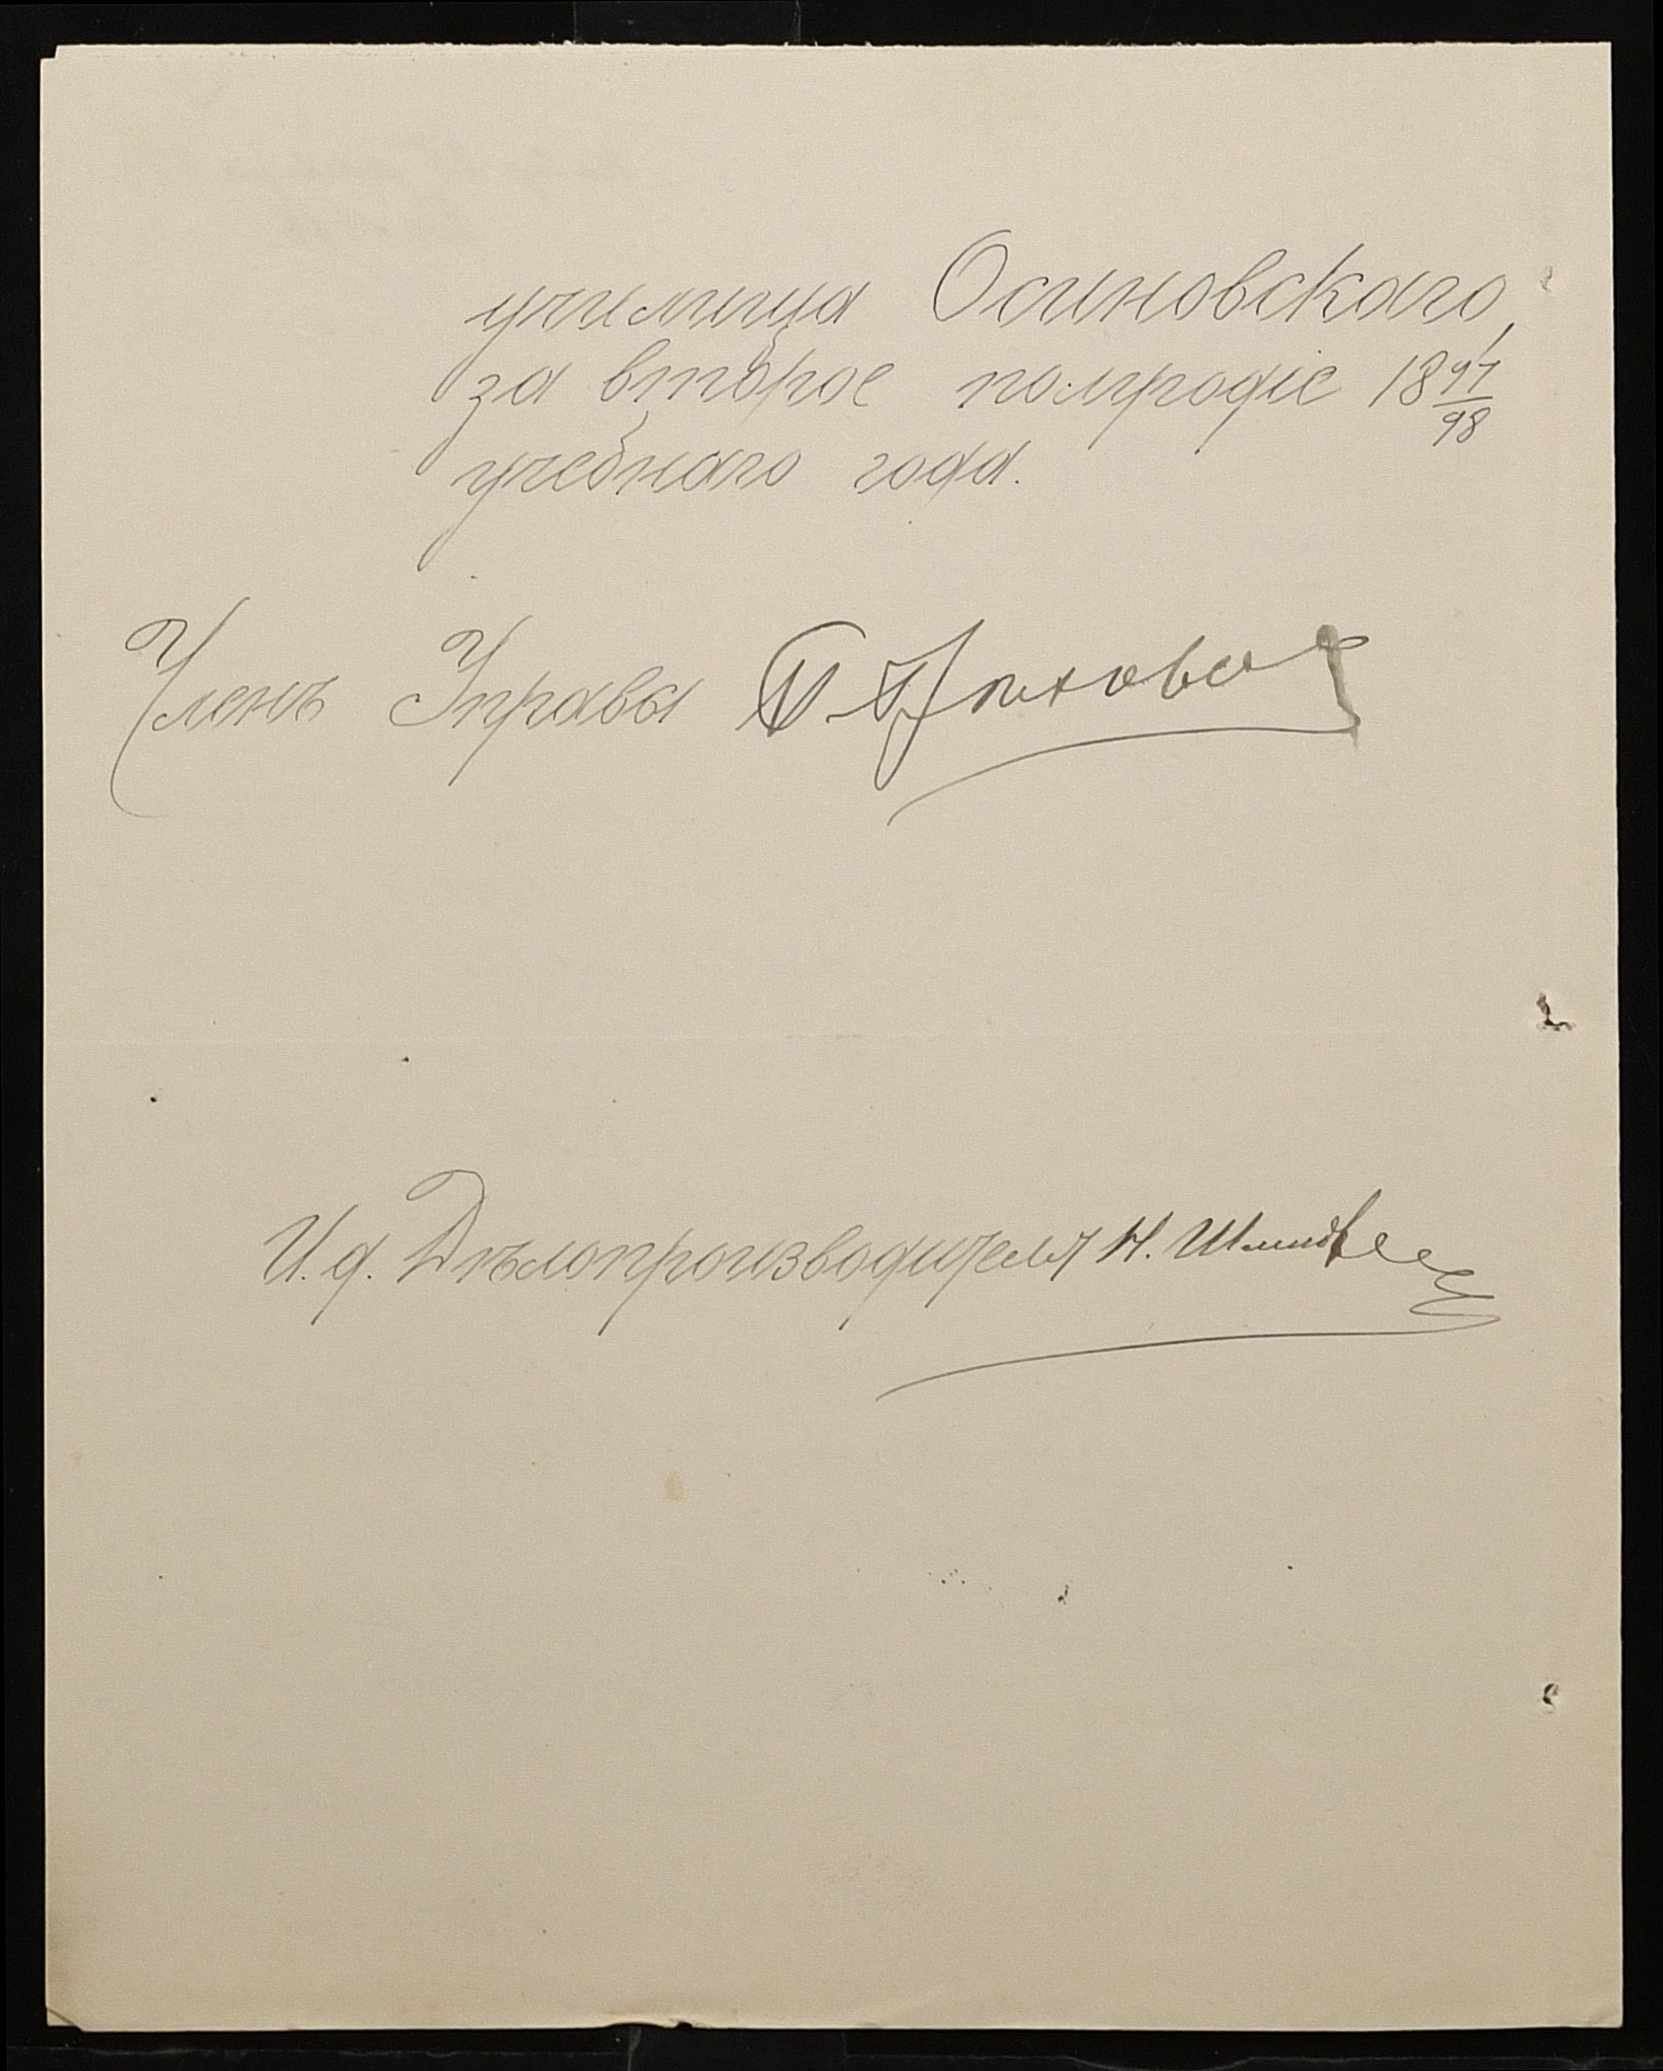 училища Осиновскаго,
за второе полугодіе 18 97/98
учебнаго года.
Членъ Управы П.
И. д. Дѣлопроизводителя Н.